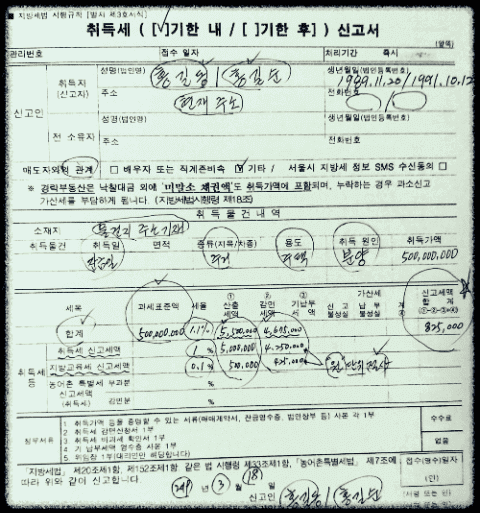 ■ 지방세법 시행규칙 [별지 제3호서식]
취득세 ( [√]기한 내 / [ ]기한 후] ) 신고서
(앞쪽)
관리번호 접수 일자 처리기간 즉시
신고인 취득자 (신고자) 성명(법인명) 홍길동 / 홍길순 생년월일(법인등록번호) 1989.11.20/1991.10.12
주소 현재 주소 전화번호
전 소유자 성명(법인명) 생년월일(법인등록번호)
주소 전화번호
매도자와의 관계 □ 배우자 또는 직계존비속 ☑ 기타 / 서울시 지방세 정보 SMS 수신동의 □
※ 경락부동산은 낙찰대금 외에 '미말소 채권액'도 취득가액에 포함되며, 누락하는 경우 과소신고
가산세를 부담하게 됩니다. (지방세법시행령 제18조)
취 득 물 건 내 역
소재지
취득물건 취득일 면적 종류(지목/차종) 용도 취득 원인 취득가액
잔금일 주택 분양 500,000,000
세목 과세표준액 세율 ① 산출세액 ② 감면세액 ③ 기납부세액 가산세 신고세액 합계 (①-②-③+④)
신고불성실 납부불성실 계 ④
합계 500,000,000 1.1% 5,500,000 4,675,000 825,000
취득세 등 취득세 신고세액 1 % 5,000,000 4,250,000
지방교육세 신고세액 0.1 % 500,000 425,000
농어촌 특별세 신고세액 (취득세) 부과분 %
감면분 %
첨부서류 1. 취득가액 등을 증명할 수 있는 서류(매매계약서, 잔금영수증, 법인장부 등) 사본 각 1부 수수료
2. 취득세 감면신청서 1부
3. 취득세 비과세 확인서 1부 없음
4. 기 납부세액 영수증 사본 1부
5. 위임장 1부(대리인만 해당합니다)
「지방세법」 제20조제1항, 제152조제1항, 같은 법 시행령 제33조제1항, 「농어촌특별세법」 제7조에 접수(영수)일자
따라 위와 같이 신고합니다. (인)
3 월 18일
신고인 홍길동 / 홍길순